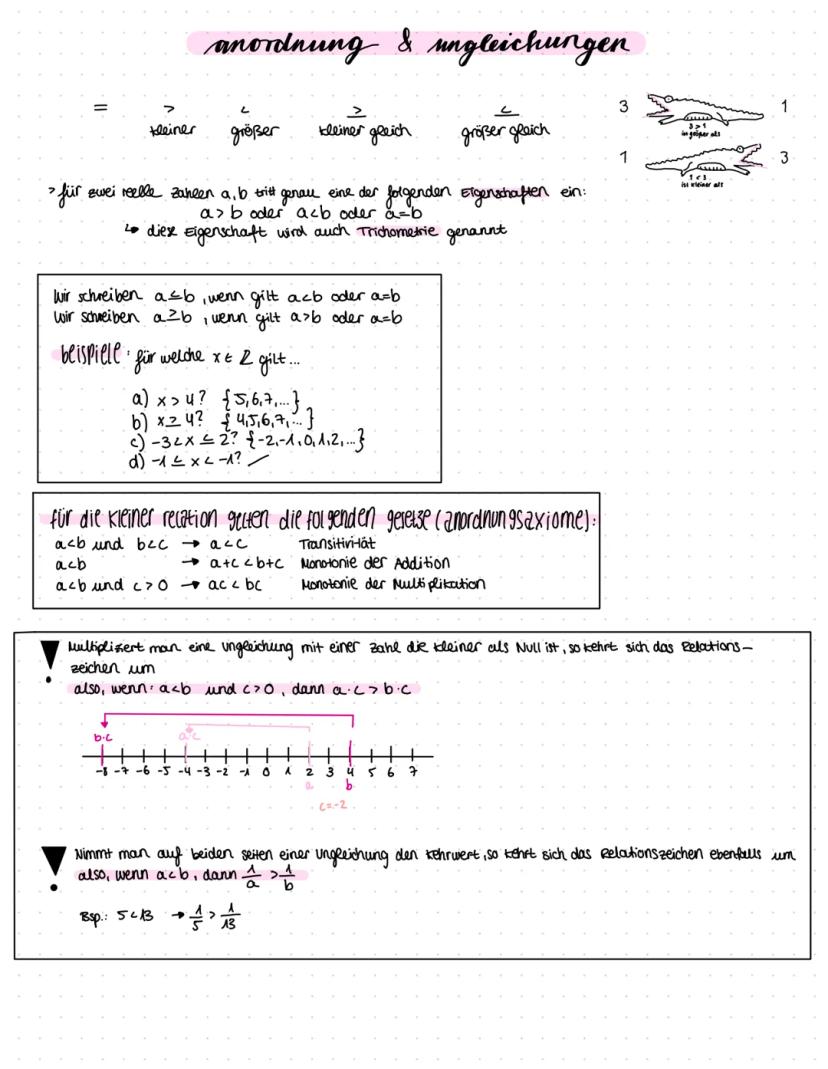 anordnung & ungleichungen
= > < ≥ ≤
kleiner größer kleiner gleich größer gleich
3 1
3 > 1
ist größer als
1 3
1 < 3
ist kleiner als
> für zwei reelle Zahlen a, b tritt genau eine der folgenden Eigenschaften ein:
a > b oder a < b oder a = b
↳ diese Eigenschaft wird auch Trichometrie genannt
Wir schreiben a ≤ b, wenn gilt a < b oder a = b
Wir schreiben a ≥ b, wenn gilt a > b oder a = b
beispiele: für welche x ∈ Z gilt...
a) x > 4? {5,6,7,...}
b) x ≥ 4? {4,5,6,7,...}
c) -3 < x ≤ 2? {-2,-1,0,1,2,...}
d) -1 ≤ x < -1? /
für die kleiner relation gelten die folgenden gesetze (anordnungsaxiome):
a < b und b < c → a < c Transitivität
a < b → a + c < b + c Monotonie der Addition
a < b und c > 0 → ac < bc Monotonie der Multiplikation
! Multipliziert man eine Ungleichung mit einer Zahl die kleiner als Null ist, so kehrt sich das Relations-
zeichen um
also, wenn: a < b und c > 0, dann a · c > b · c
b·c a·c
-8 -7 -6 -5 -4 -3 -2 -1 0 1 2 3 4 5 6 7
a b
c = -2
! Nimmt man auf beiden seiten einer Ungleichung den Kehrwert, so kehrt sich das Relationszeichen ebenfalls um
also, wenn a < b, dann 1/a > 1/b
Bsp.: 5 < 13 → 1/5 > 1/13